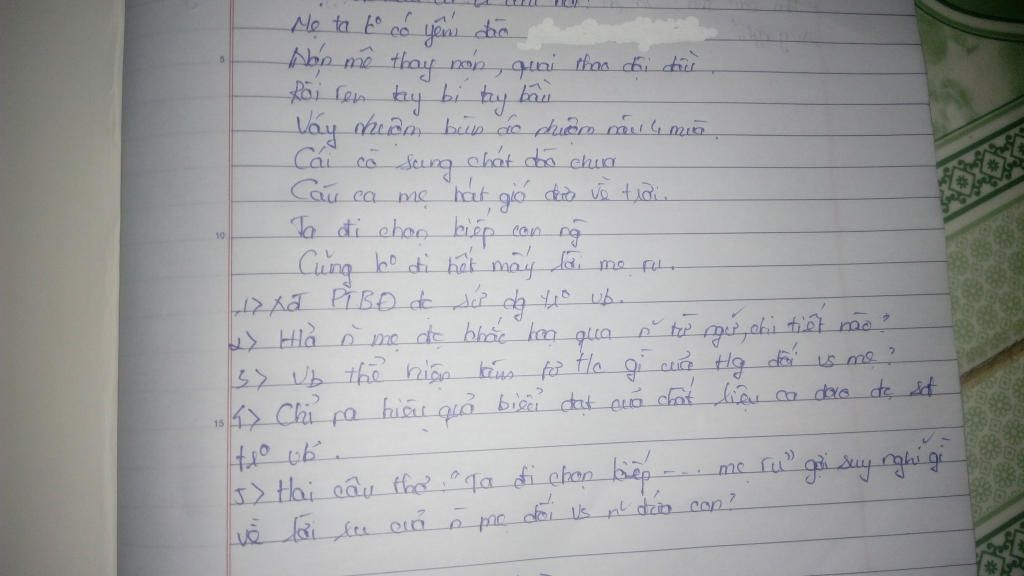 Mẹ ta kº có yếm đào
Nón mê thay nón, quai thao đội đầu.
Rối ren tay bí tay bầu
Váy nhuộm bùn áo nhuộm nâu 4 mùa.
Cái cò sung chát đào chua
Câu ca mẹ hát gió đưa về trời.
Ta đi chọn kiếp con ng
Cũng kº đi hết mấy lời mẹ ru.
1> PTBĐ đc sử dg trº vb.
2> Hả mẹ đc khắc hoạ qua từ ngữ, chi tiết nào?
3> Vb thể hiện gì của đối vs mẹ?
4> Chỉ ra hiệu quả biểu đạt của chất liệu ca dao đc sd
trº vb.
5> Hai câu thơ: "Ta đi chọn kiếp .... mẹ ru" gợi suy nghĩ gì
về lời ru của mẹ đối vs đứa con?